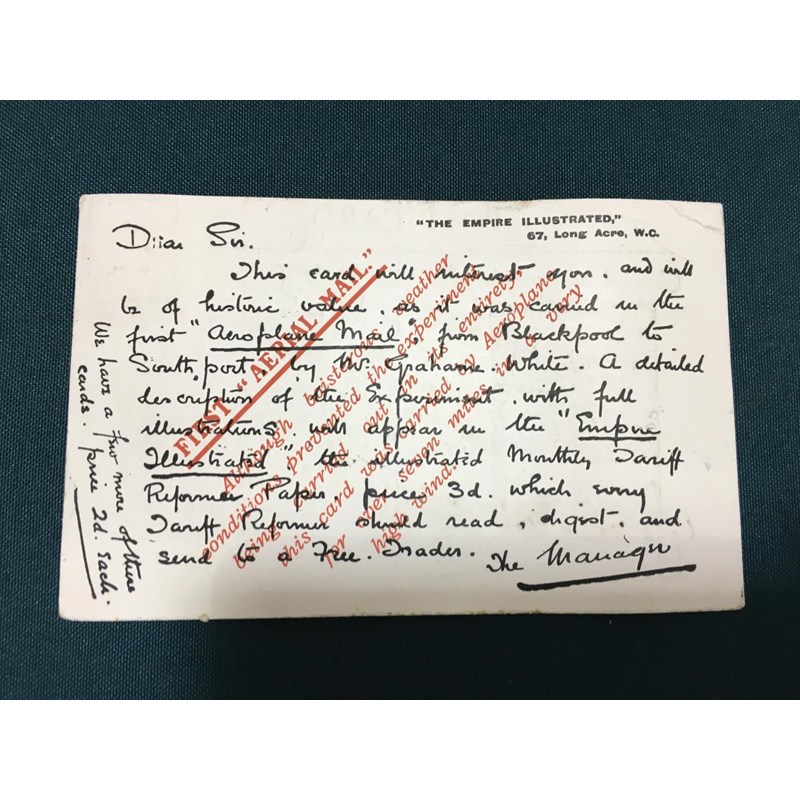 "THE EMPIRE ILLUSTRATED,"
67, Long Acre, W.C.
Dear Sir.
This card will interest you. and will
be of historic value, as it was carried in the
first "Aeroplane Mail", from Blackpool to
Southport, by Mr. Grahame-White. A detailed
description of the Experiment, with full
illustrations will appear in the "Empire
Illustrated" the illustrated Monthly Tariff
Reformer Paper, price 3d. which every
Tariff Reformer should read, digest, and
send to a Free-Trader.
The Manager
We have a few more of these
cards. price 2d. Each.
FIRST "AERIAL MAIL"
Although boisterous weather
conditions prevented the experiment
being carried out in its entirety,
this card was carried by Aeroplane
for over seven miles in a very
high wind.